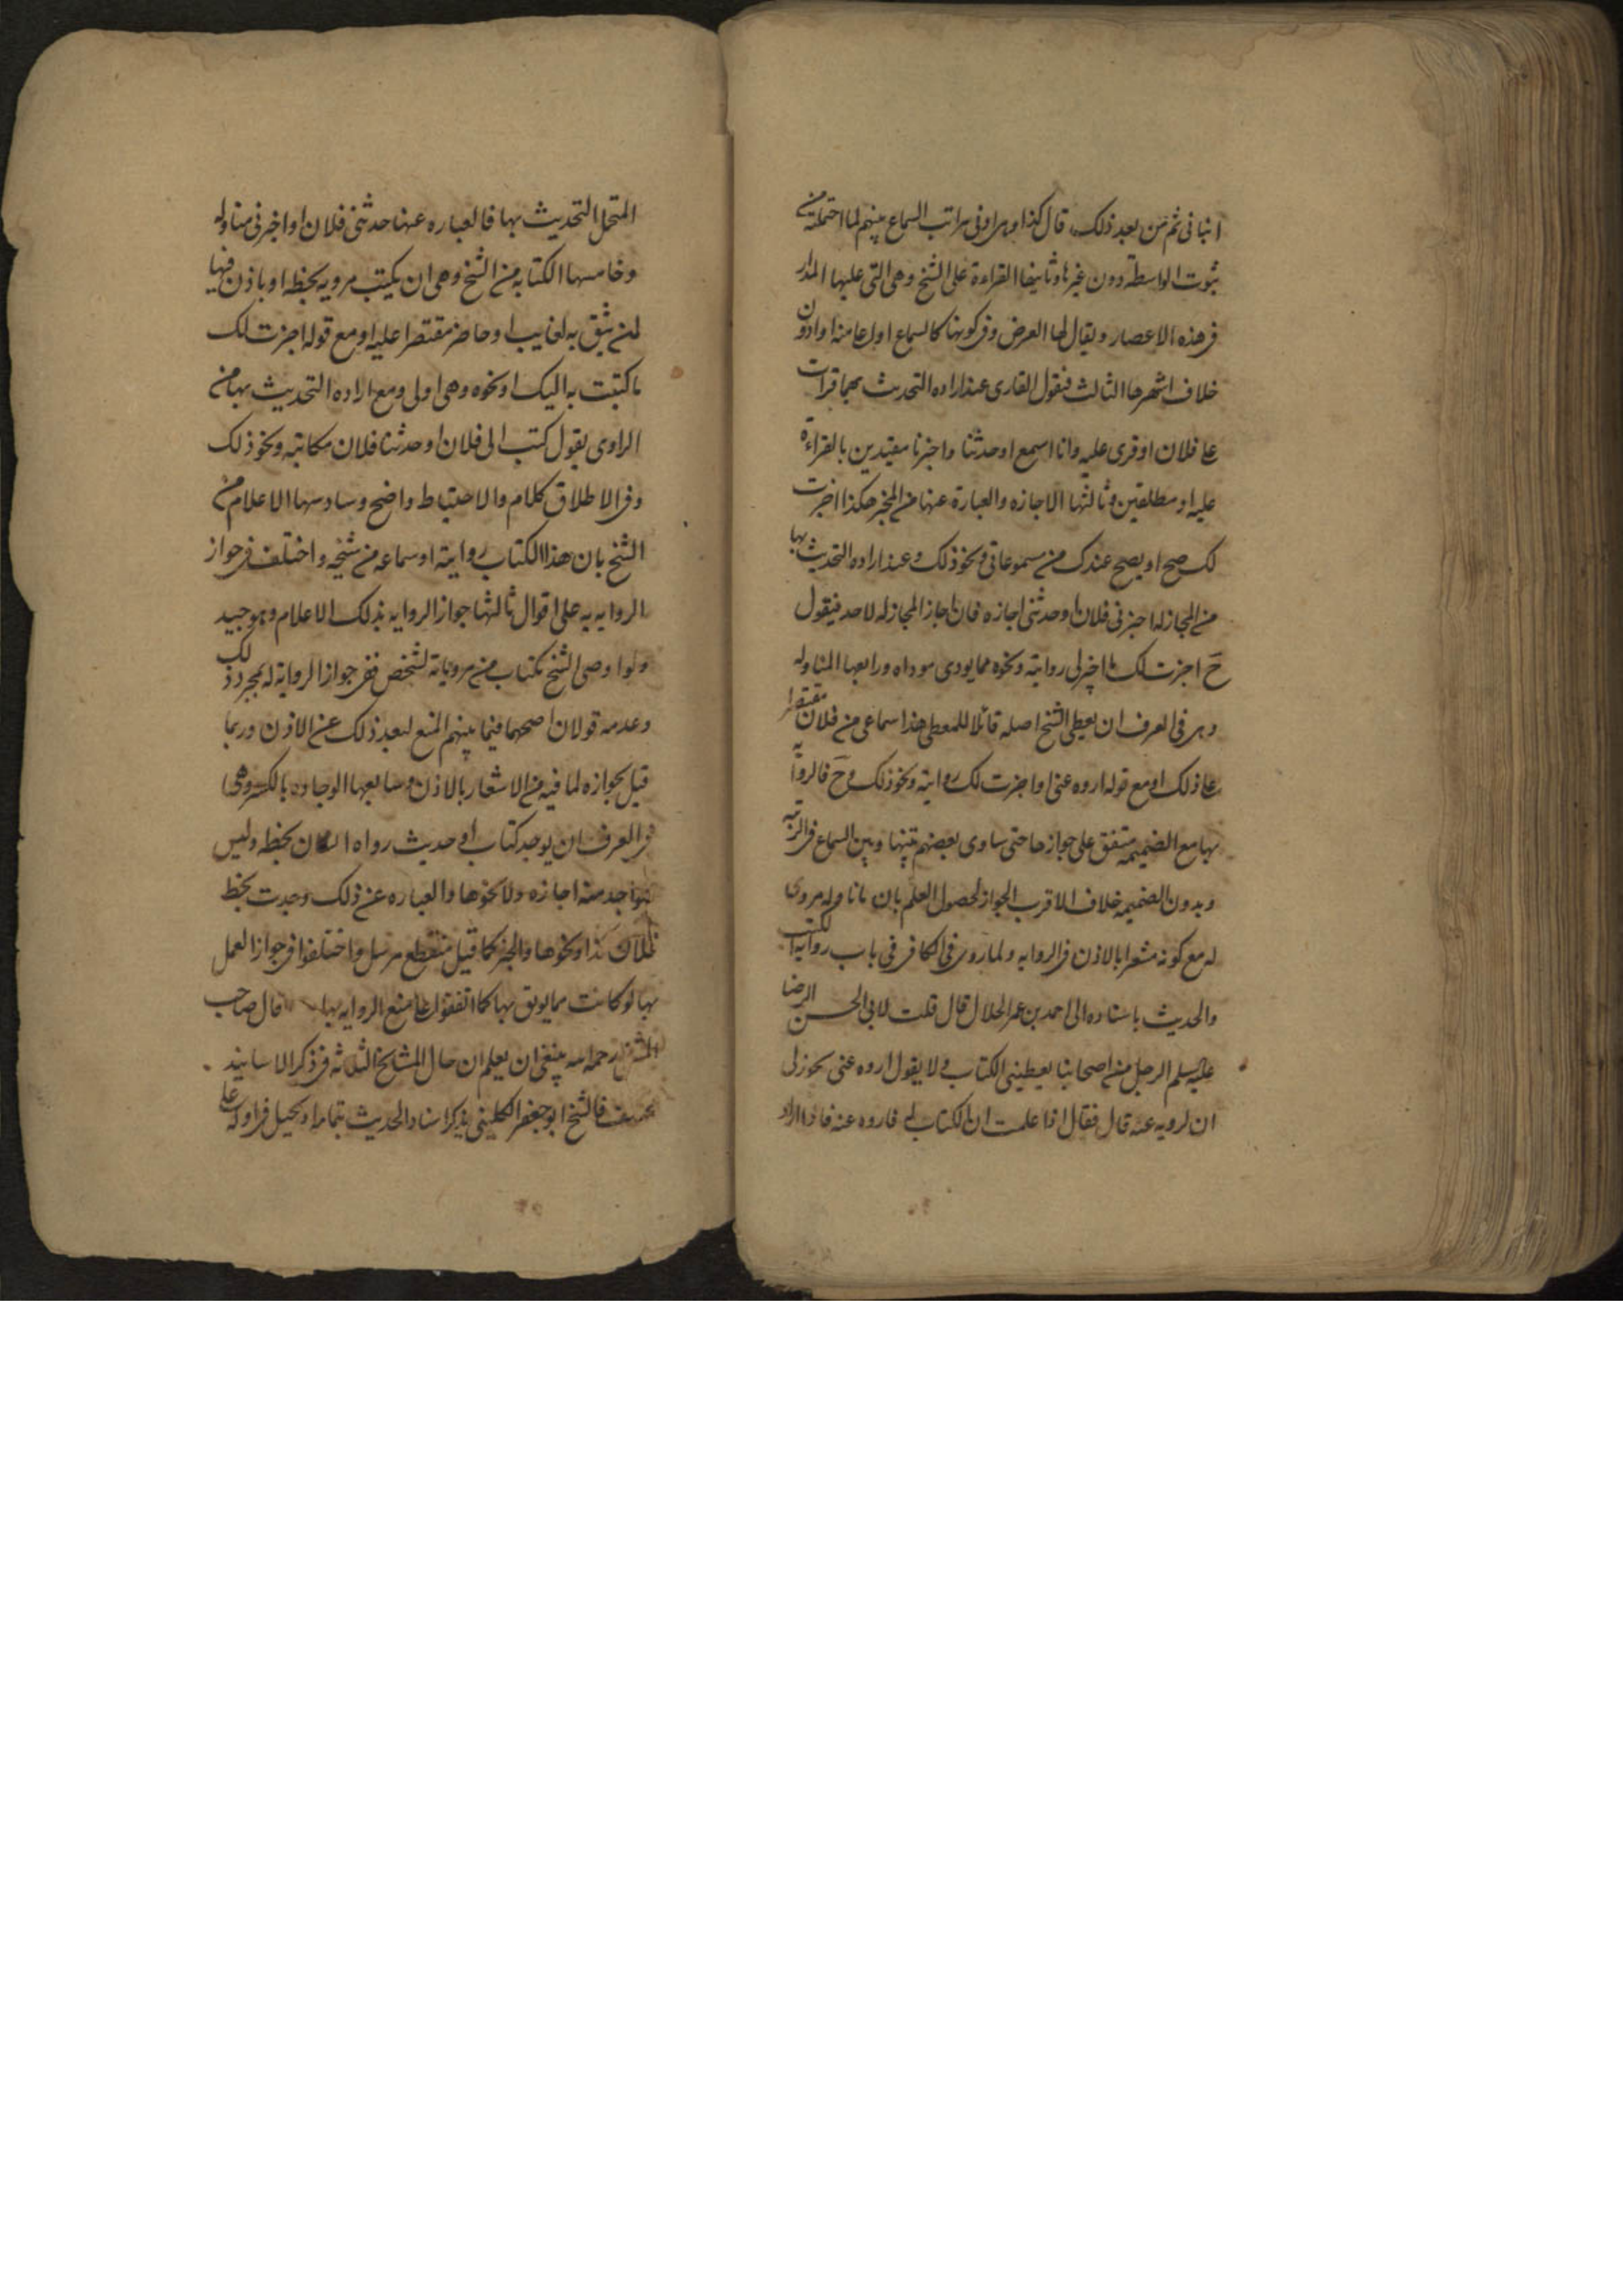 انبانى ثم من بعد ذلك قال كذا وهى ادنى مراتب السماع بينهم لما احتملته من
ثبوت الواسطة دون غيرها وثانيها القراءة على الشيخ وهى التى عليها المدار
فى هذه الاعصار ويقال لها العرض وفى كونها كالسماع او اعلى منه او ادون
خلاف اشهرها الثالث فيقول القارى عند اراده التحديث بهما قرات
على فلان او قرى عليه وانا اسمع او حدثنا واخبرنا مقيدين بالقراءة
عليه او مطلقين وثالثها الاجازه والعبارة عنها من المخبر هكذا اجزت
لك ما صح او يصح عندك من مسموعاتى ونحو ذلك وعند اراده التحديث بها
من المجاز له اخبرنى فلان او حدثنى اجازه فان اجاز المجاز له لاحد فيقول
ح اجزت لك ما اجيز لى روايته ونحوه مما يودى موداه ورابعها المناوله
وهى فى العرف ان يعطى الشيخ اصله قائلا للمعطى هذا سماعى من فلان مقتصرا
على ذلك او مع قوله اروه عنى او اجزت لك روايته ونحو ذلك وح فالرواية
بها مع الضميمه متفق على جوازها حتى ساوى بعضهم بينها وبين السماع فى الرتبه
وبدون الضميمه خلاف الاقرب الجواز لحصول العلم بان ما ناوله مروى
له مع كونه مشعرا بالاذن فى الروايه ولما روى فى الكافى فى باب رواية الكتب
والحديث باسناده الى احمد بن عمر الحلال قال قلت لابى الحسن الرضا
عليه السلم الرجل من اصحابنا يعطينى الكتاب ولا يقول اروه عنى يجوز لى
ان ارويه عنه قال فقال اذا علمت ان الكتاب له فاروه عنه فاذا اراد
المتحمل التحديث بها فالعباره عنها حدثنى فلان او اخبرنى مناوله
وخامسها الكتابه من الشيخ وهى ان يكتب مرويه بخطه او باذن فيها
لمن يثق به لغايب او حاضر مقتصرا عليه او مع قوله اجزت لك
ما كتبت به اليك او نحوه وهى اولى ومع اراده التحديث بها من
الراوى يقول كتب الى فلان او حدثنا فلان مكاتبه ونحو ذلك
وفى الاطلاق كلام والاحتياط واضح وسادسها الاعلام من
الشيخ بان هذا الكتاب روايته او سماعه من شيخه واختلف فى جواز
الروايه به على اقوال ثالثها جواز الروايه بذلك الاعلام وهو جيد
ولو اوصى الشيخ بكتاب من مروياته لشخص ففى جواز الرواية له بمجرد ذلك
وعدمه قولان اصحهما فيما بينهم المنع لبعد ذلك عن الاذن وربما
قيل بجوازه لما فيه من الاشعار بالاذن وسابعها الوجاده بالكسر وهى
فى العرف ان يوجد كتاب او حديث رواه انسان بخطه وليس
للواجد منه اجازه ولا نحوها والعباره عن ذلك وجدت بخط
فلان كذا ونحوها والخبر كما قيل منقطع مرسل واختلفوا فى جواز العمل
بها لو كانت مما يوثق بها كما اتفقوا على منع الروايه بها قال صاحب
رحمه الله ينبغى ان يعلم ان حال المشايخ الثلاثه فى ذكر الاسانيد
مختلف فالشيخ ابو جعفر الكلينى يذكر اسناد الحديث بتمامه او يحيل فى اوله على